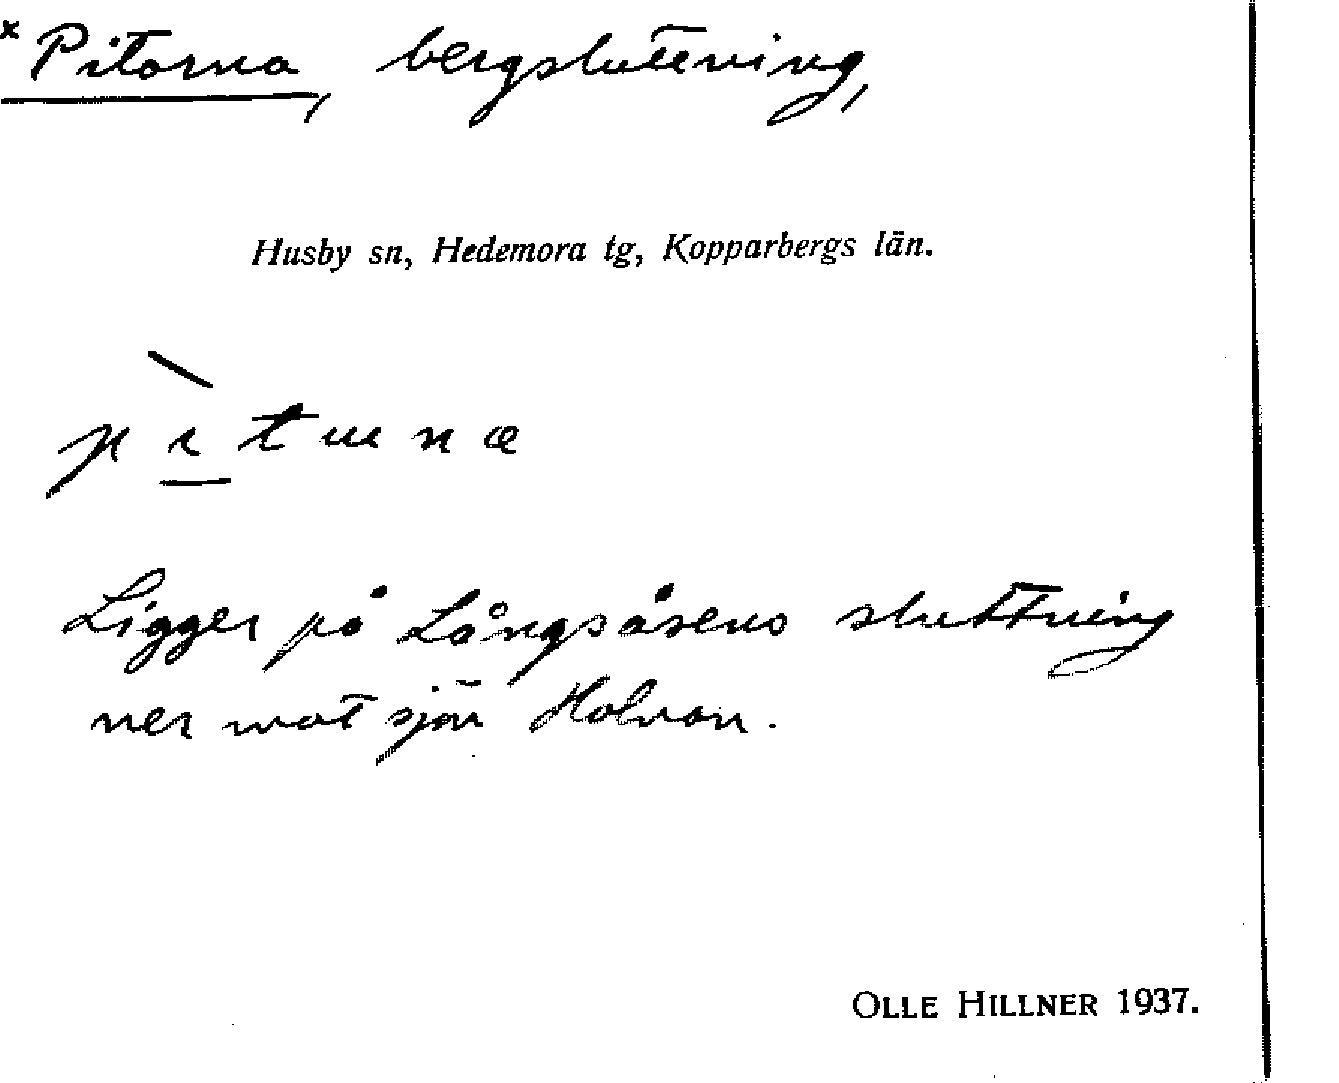 x Pitorna, bergsluttning,
Husby sn, Hedemora tg, Kopparbergs län.
Ligger på Långsåsens sluttning
ner mot sjön Holvan.
OLLE HILLNER 1937.